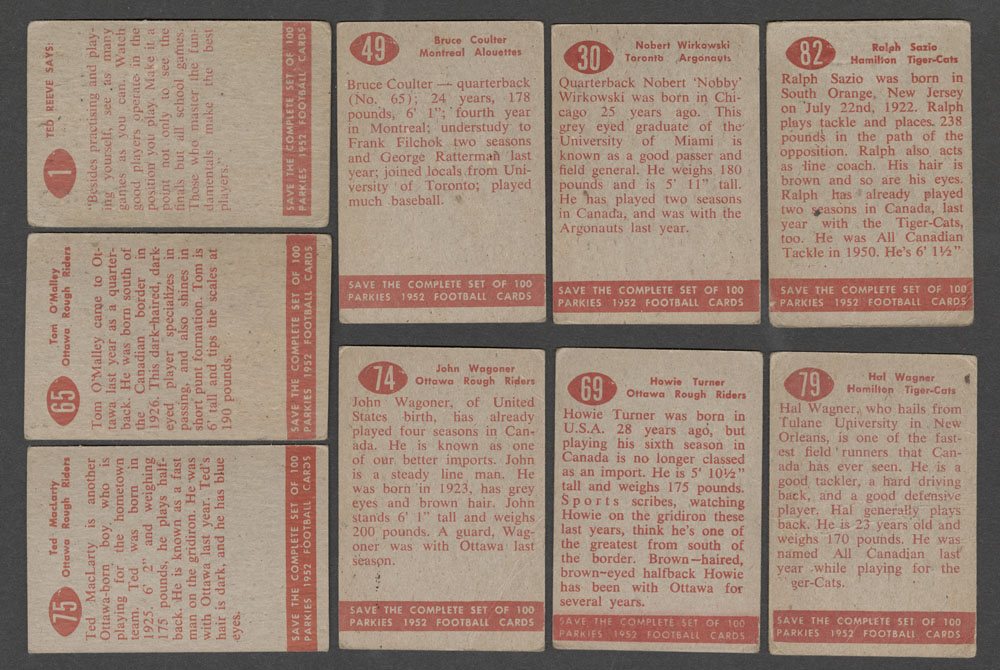 1
TED REEVE SAYS:
"Besides practising and play-
ing yourself, see as many
games as you can. Watch
good players operate in the
position you play. Make it a
point not only to see the
finals but all school games.
Those who master the fun-
damentals make the best
players."
SAVE THE COMPLETE SET OF 100
PARKIES 1952 FOOTBALL CARDS
49
Bruce Coulter
Montreal Alouettes
Bruce Coulter — quarterback
(No. 65); 24 years, 178
pounds, 6' 1"; fourth year
in Montreal; understudy to
Frank Filchok two seasons
and George Ratterman last
year; joined locals from Uni-
versity of Toronto; played
much baseball.
SAVE THE COMPLETE SET OF 100
PARKIES 1952 FOOTBALL CARDS
30
Nobert Wirkowski
Toronto Argonauts
Quarterback Nobert 'Nobby'
Wirkowski was born in Chi-
cago 25 years ago. This
grey eyed graduate of the
University of Miami is
known as a good passer and
field general. He weighs 180
pounds and is 5' 11" tall.
He has played two seasons
in Canada, and was with the
Argonauts last year.
SAVE THE COMPLETE SET OF 100
PARKIES 1952 FOOTBALL CARDS
82
Ralph Sazio
Hamilton Tiger-Cats
Ralph Sazio was born in
South Orange, New Jersey
on July 22nd, 1922. Ralph
plays tackle and places 238
pounds in the path of the
opposition. Ralph also acts
as line coach. His hair is
brown and so are his eyes.
Ralph has already played
two seasons in Canada, last
year with the Tiger-Cats,
too. He was All Canadian
Tackle in 1950. He's 6' 1½"
SAVE THE COMPLETE SET OF 100
PARKIES 1952 FOOTBALL CARDS
65
Tom O'Malley
Ottawa Rough Riders
Tom O'Malley care to Ot-
tawa last year as a quarter-
back. He was born south of
the Canadian border in
1926. This dark-haired, dark-
eyed player specializes in
passing, and also shines in
short punt formation. Tom is
6' tall and tips the scales at
190 pounds.
SAVE THE COMPLETE SET OF 100
PARKIES 1952 FOOTBALL CARDS
75
Ted MacLarty
Ottawa Rough Riders
Ted MacLarty is another
Ottawa-born boy, who is
playing for the hometown
team. Ted was born in
1925. 6' 2" and weighing
175 pounds, he plays half-
back. He is known as a fast
man on the gridiron. He was
with Ottawa last year. Ted's
hair is dark, and he has blue
eyes.
SAVE THE COMPLETE SET OF 100
PARKIES 1952 FOOTBALL CARDS
74
John Wagoner
Ottawa Rough Riders
John Wagoner, of United
States birth, has already
played four seasons in Can-
ada. He is known as one
of our better imports. John
is a steady line man. He
was born in 1923, has grey
eyes and brown hair. John
stands 6' 1" tall and weighs
200 pounds. A guard, Wag-
oner was with Ottawa last
season.
SAVE THE COMPLETE SET OF 100
PARKIES 1952 FOOTBALL CARDS
69
Howie Turner
Ottawa Rough Riders
Howie Turner was born in
U.S.A. 28 years ago, but
playing his sixth season in
Canada is no longer classed
as an import. He is 5' 10½"
tall and weighs 175 pounds.
Sports scribes, watching
Howie on the gridiron these
last years, think he's one of
the greatest from south of
the border. Brown—haired,
brown-eyed halfback Howie
has been with Ottawa for
several years.
SAVE THE COMPLETE SET OF 100
PARKIES 1952 FOOTBALL CARDS
79
Hal Wagner
Hamilton Tiger-Cats
Hal Wagner, who hails from
Tulane University in New
Orleans, is one of the fast-
est field runners that Can-
ada has ever seen. He is a
good tackler, a hard driving
back, and a good defensive
player. Hal generally plays
back. He is 23 years old and
weighs 170 pounds. He was
named All Canadian last
year while playing for the
ger-Cats.
SAVE THE COMPLETE SET OF 100
PARKIES 1952 FOOTBALL CARDS